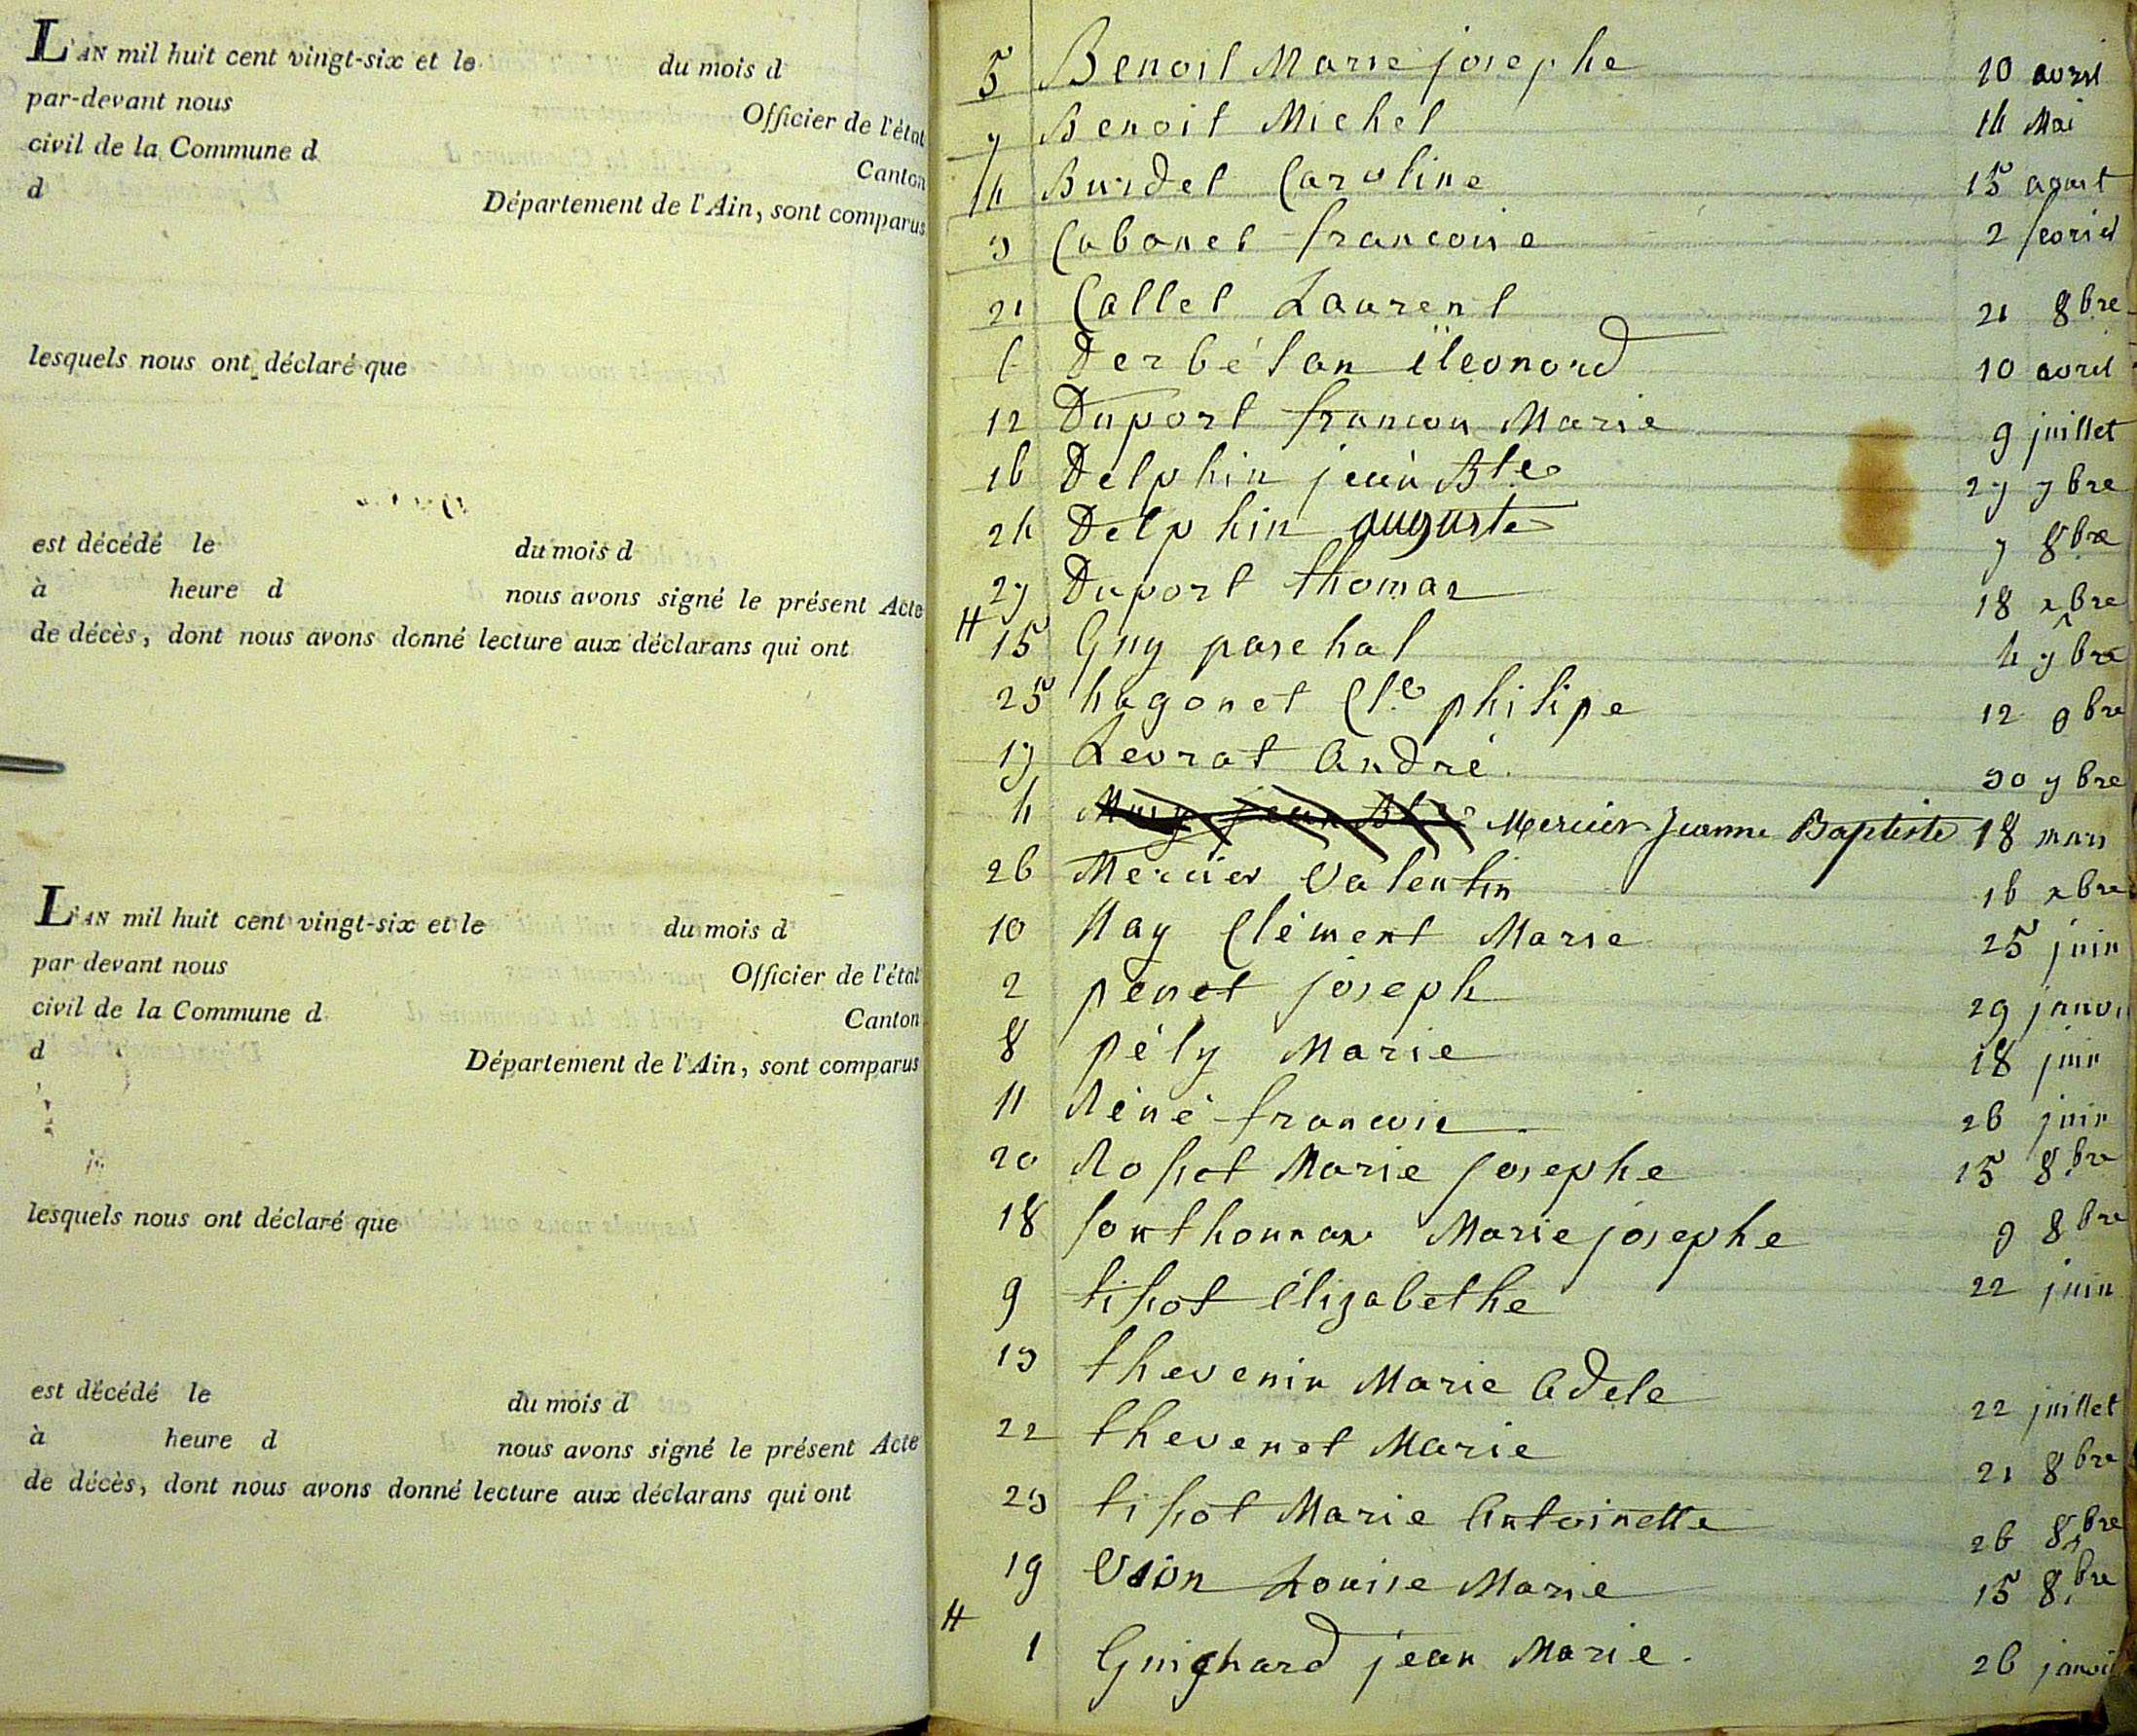 L'AN mil huit cent vingt-six et le du mois d
par-devant nous Officier de l'état
civil de la Commune d Canton
d Département de l'Ain, sont comparus
lesquels nous ont déclaré que
est décédé le du mois d
à heure d nous avons signé le présent Acte
de décès, dont nous avons donné lecture aux déclarans qui ont
L'AN mil huit cent vingt-six et le du mois d
par-devant nous Officier de l'état
civil de la Commune d Canton
d Département de l'Ain, sont comparus
lesquels nous ont déclaré que
est décédé le du mois d
à heure d nous avons signé le présent Acte
de décès, dont nous avons donné lecture aux déclarans qui ont
5 Benoit Marie josephe 10 avril
7 Benoit Michel 14 Mai
14 Burdet Caroline 15 aoust
3 Cabanet francoise 2
21 Callet Laurent 21 8bre
6 Derbétan éléonord 10 avril
12 Duport francois Marie 9 juillet
16 Delphin jean Bte 27 7bre
24 Delphin auguste 7 8bre
27 Duport thomas 18 xbre
15 Guy paschal 4 7bre
25 hugonet Cle philipe 12 9bre
17 Levrat André 30 7bre
4 Mercier Jeanne Baptiste 18 mars
26 Mercier Valentin 16 xbre
10 Nay Clément Marie 25 juin
2 penet joseph 29 janvi
8 pély Marie 18 juin
11 Réné francois 26 juin
20 Rosset Marie josephe 15 8bre
18 Sonthonnax Marie josephe 9 8bre
9 tissot élizabethe 22 juin
13 thevenin Marie Adele 22 juillet
22 thevenot Marie 21 8bre
23 tissot Marie Antoinette 26 8bre
19 Vion Louise Marie 15 8bre
1 Guichard jean Marie. 26 janvi